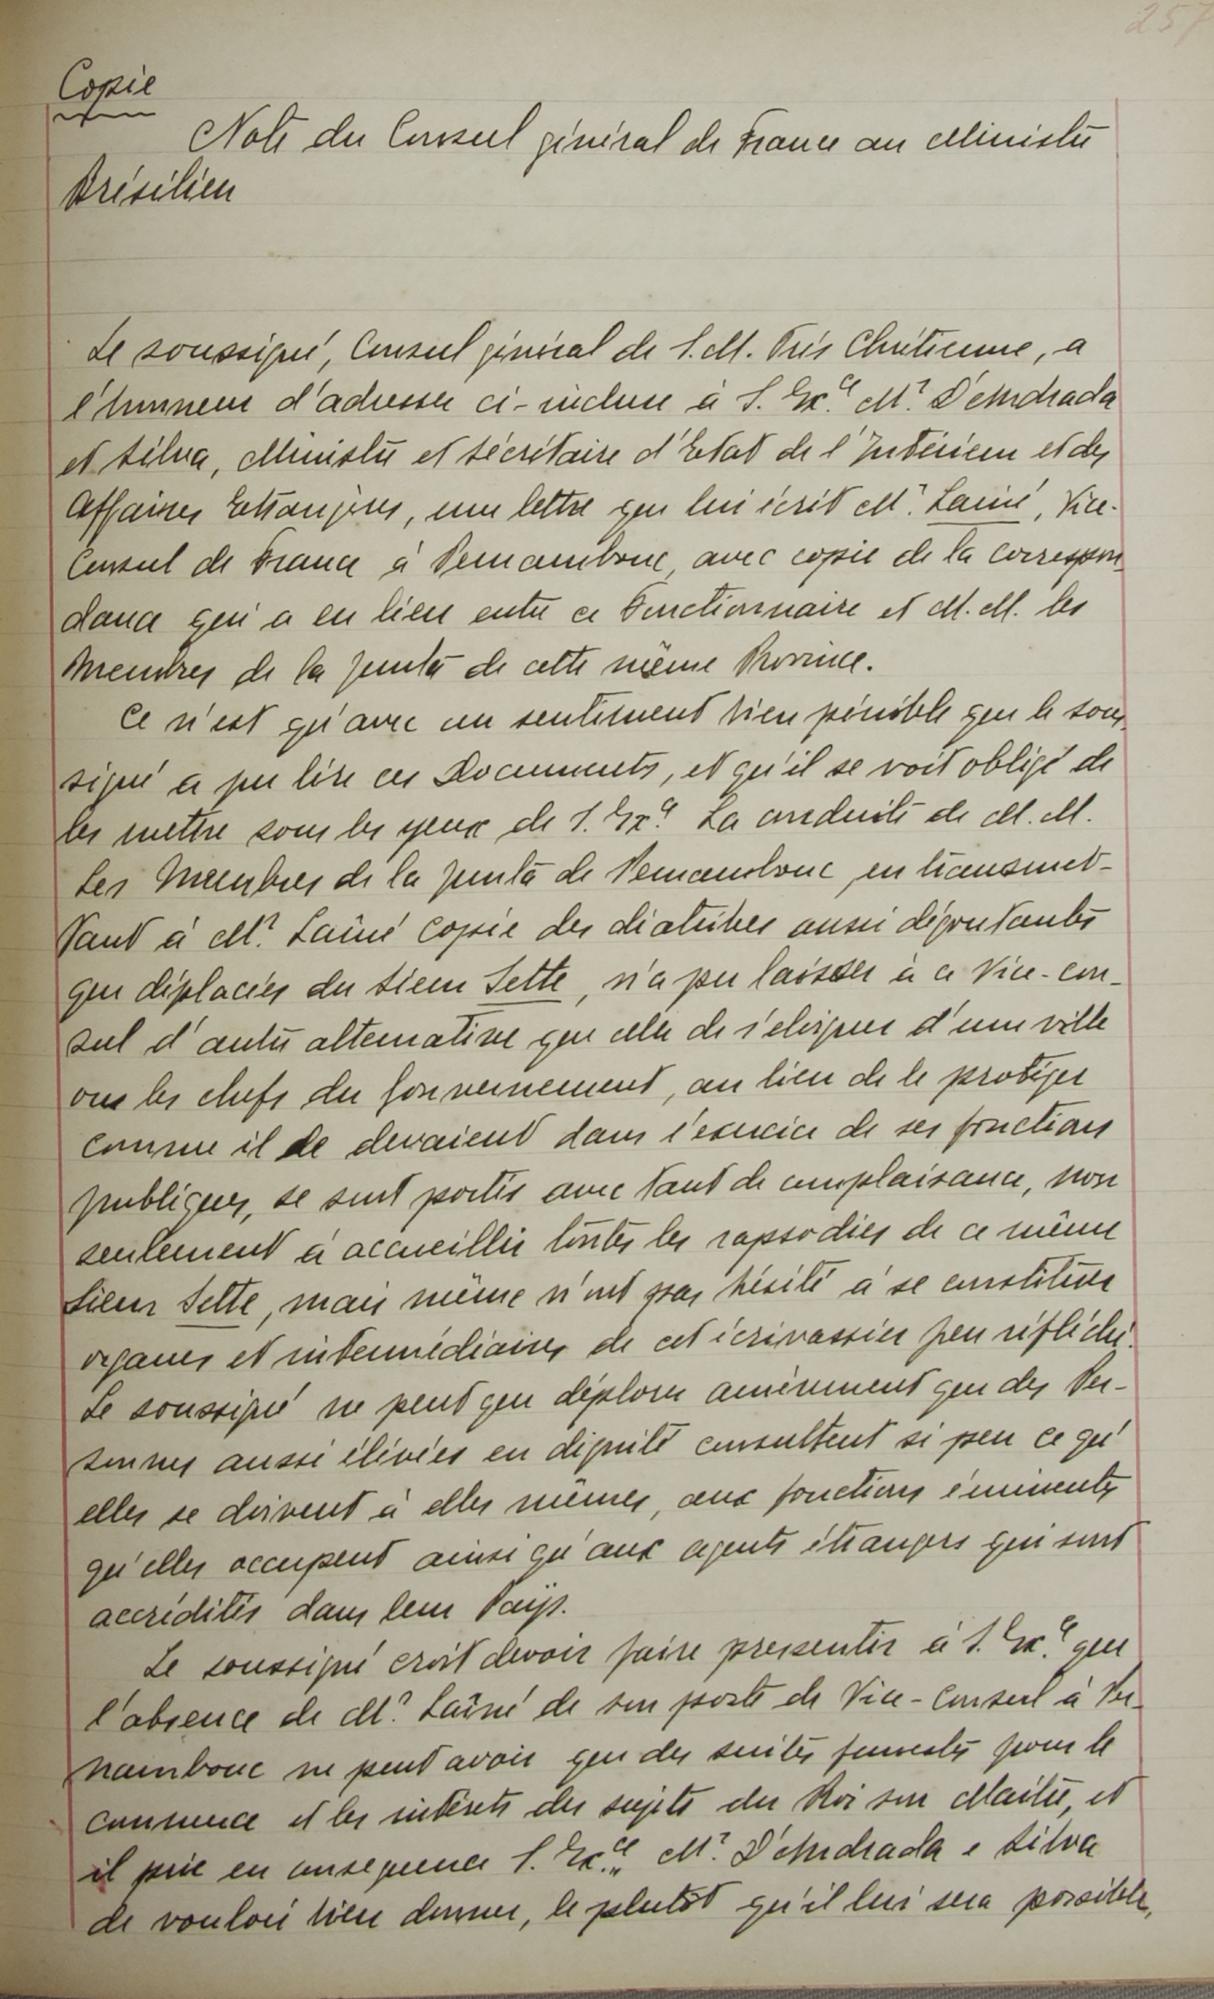 257
Copie
Note du Consul général de France au Ministre
Brésilien
Le soussigné, Consul général de S. M. Très Chrétienne, a
l'honneur d'adresser ci-incluse à S. Ex.ce Mr. D'Andrada
et Silva, Ministre et Sécrétaire d'Etat de l'Intérieur et des
Affaires Etrangères, une lettre que lui écrit Mr. Lainé, Vice-
Consul de France à Pernambouc, avec copie de la correspon-
dance qui a eu lieu entre ce Fonctionnaire et M. M. les
Membres de la Junta de cette même Province.
Ce n'est qu'avec un sentiment bien pénible que le sous-
signé a pu lire ces Documents, et qu'il se voit obligé de
les mettre sous les yeux de S. Ex.ce La conduite de M. M.
Les Membres de la Junta de Pernambouc, en transmet-
tant à Mr. Laîné copie des diatribes aussi dégoutantes
que déplacées du Sieur Sette, n'a pu laisser à ce Vice-con-
sul d'autre alternative que celle de s'eloigner d'une ville
ou les chefs du Gouvernement, au lieu de le protéger
comme il le devaient dans l'exercice de ses fonctions
publiques, se sont portés avec tant de complaisance, non
seulement à accueillir toutes les rapsodies de ce même
Sieur Sette, mais même n'ont pas hésité à se constituer
organes et intermédiaires de cet écrivassier peu réfléchi.
Le soussigné ne peut que déplorer amèrement que des Per-
sonnes aussi élévées en dignité consultent si peu ce qu'
elles se doivent à elles mêmes, aux fonctions éminentes
qu'elles occupent ainsi qu'aux agents étrangers qui sont
accrédités dans leur Pays.
Le soussigné croit devoir faire pressentir à S. Ex.ce que
l'absence de Mr. Laîné de son poste de Vice-Consul à Per-
nambouc ne peut avoir que des suites funestes pour le
commerce et les intérets des sujets du Roi son Maître, et
il prie en consequence S. Ex.ce Mr. D'Andrada e Silva
de vouloir bien donner, le plutôt qu'il lui sera possible,